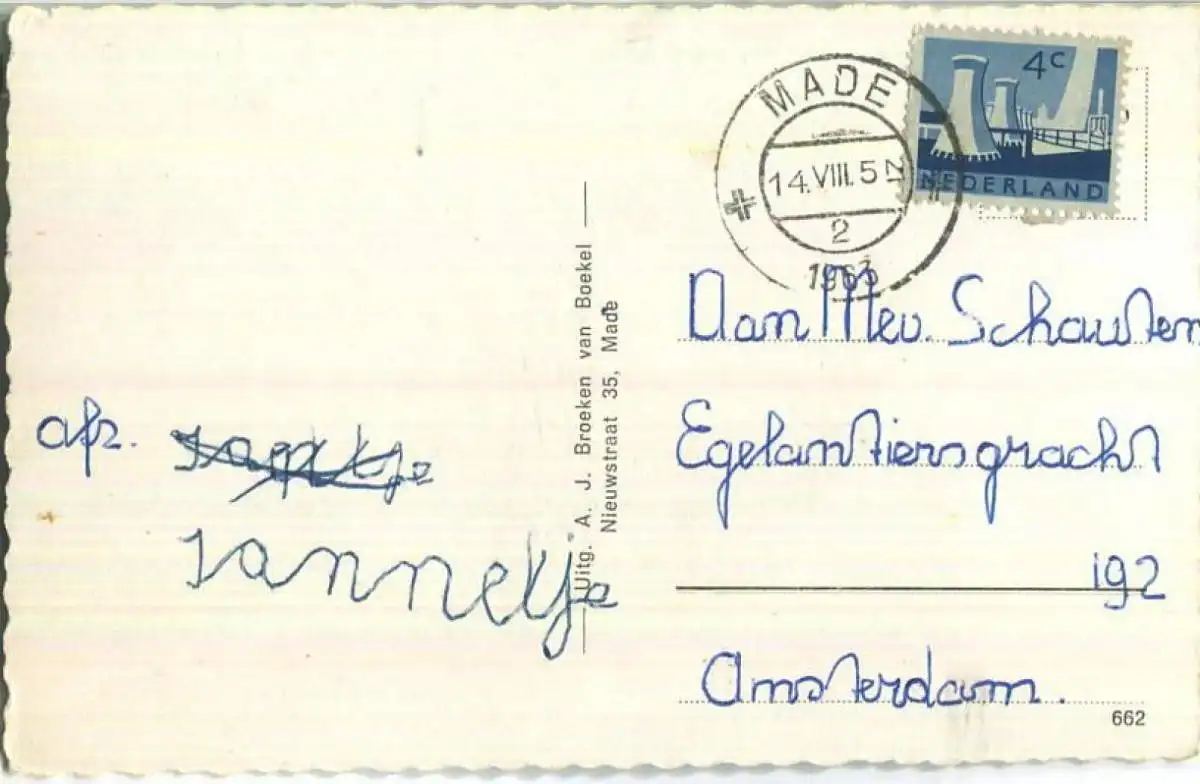 4c
NEDERLAND
MADE
14.VIII.5 21
2
1963
afz.
Jannetje
Uitg. A. J. Broeken van Boekel
Nieuwstraat 35, Made
Aan Mev. Schouten
Egelantiersgracht
192
Amsterdam.
662